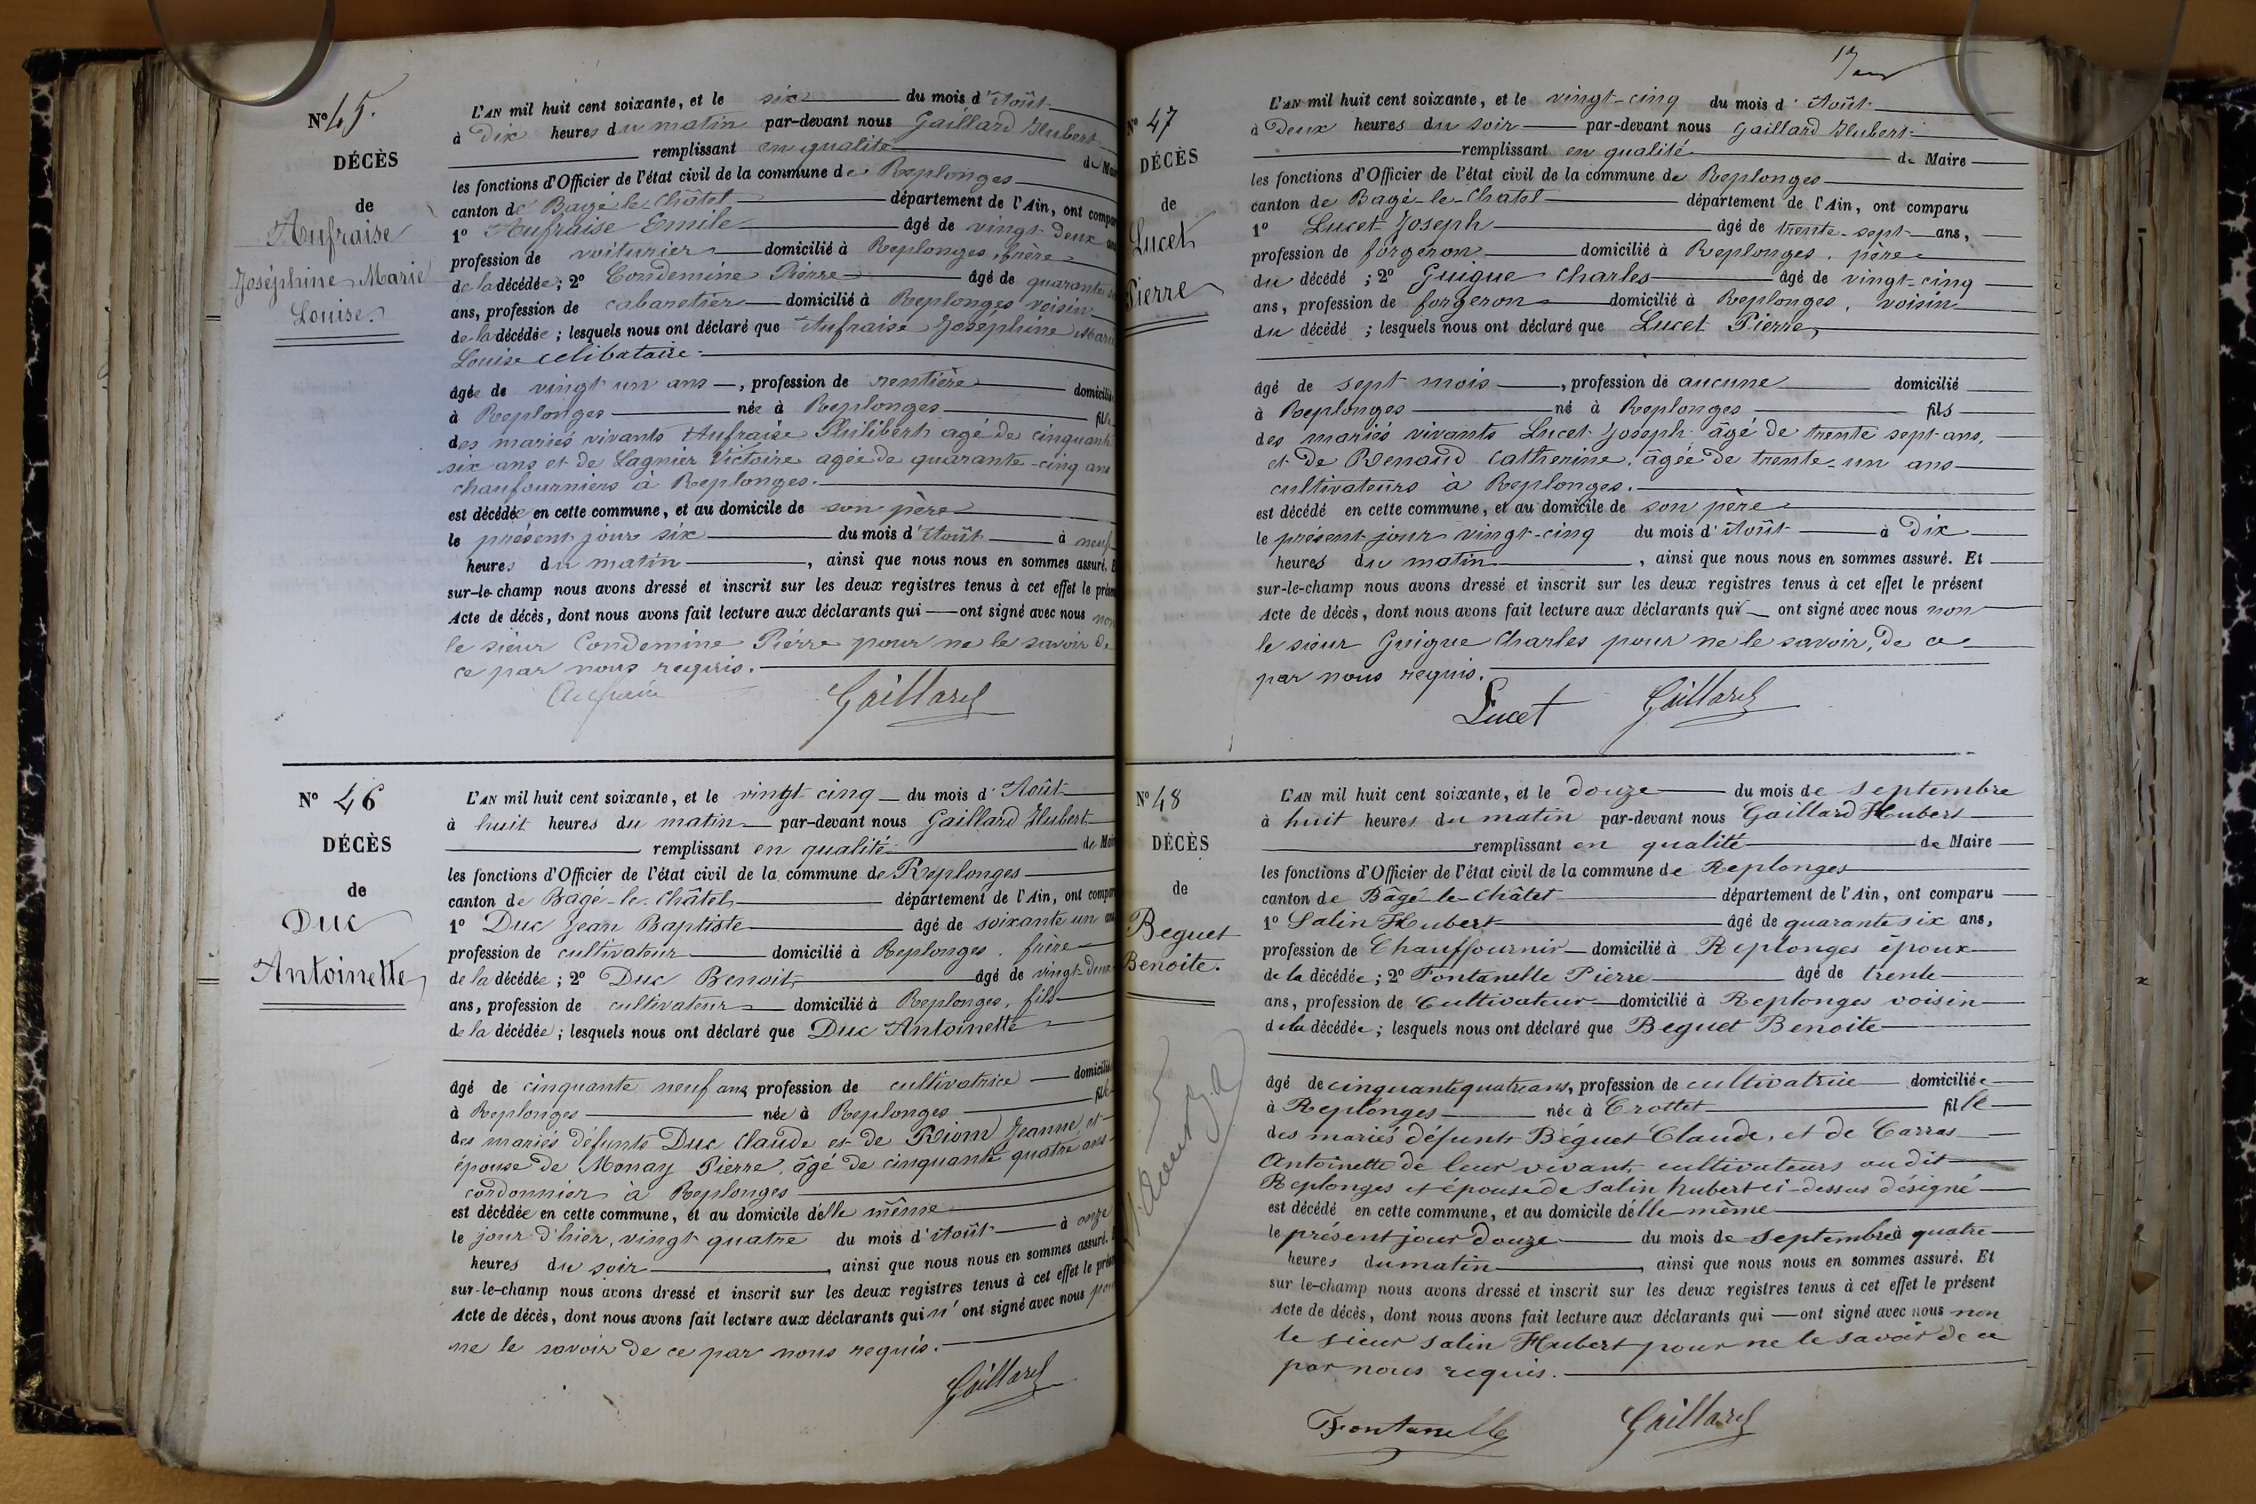 N° 45.
DÉCÈS
de
Aufraise
Joséphine Marie
Louise.
L'AN mil huit cent soixante, et le six du mois d'Août
à Dix heures du matin par-devant nous Gaillard Hubert
remplissant en qualité de Maire
les fonctions d'Officier de l'état civil de la commune de Replonges
canton de Bagé-le-Châtel département de l'Ain, ont comparu
1° Aufraise Emile âgé de vingt-deux ans
profession de voiturier domicilié à Replonges, frère
de la décédée; 2° Condemine Pierre âgé de quarante
ans, profession de cabaretier domicilié à Replonges voisin
de la décédée; lesquels nous ont déclaré que Aufraise Joséphine Marie
Louise célibataire
âgée de vingt un ans, profession de rentière domiciliée
à Replonges née à Replonges fille
des mariés vivants Aufraise Philibert agé de cinquante
six ans et de Lagnier Victoire agée de quarante-cinq ans
chaufourniers à Replonges.
est décédée en cette commune, et au domicile de son père
le présent jour six du mois d'Août à neuf
heures du matin, ainsi que nous nous en sommes assuré. Et
sur-le-champ nous avons dressé et inscrit sur les deux registres tenus à cet effet le présent
Acte de décès, dont nous avons fait lecture aux déclarants qui ont signé avec nous non
le sieur Condemine Pierre pour ne le savoir de
ce par nous requis.
Aufraise Gaillard
N° 46
DÉCÈS
de
Duc
Antoinette
L'AN mil huit cent soixante, et le vingt-cinq du mois d'Août
à huit heures du matin par-devant nous Gaillard Hubert
remplissant en qualité de Maire
les fonctions d'Officier de l'état civil de la commune de Replonges
canton de Bagé-le-Châtel département de l'Ain, ont comparu
1° Duc Jean Baptiste âgé de soixante un ans
profession de cultivateur domicilié à Replonges. frère
de la décédée; 2° Duc Benoit âgé de vingt-deux
ans, profession de cultivateur domicilié à Replonges, fils
de la décédée; lesquels nous ont déclaré que Duc Antoinette
âgé de cinquante neuf ans, profession de cultivatrice domiciliée
à Replonges née à Replonges fille
des mariés défunts Duc Claude et de Riom Jeanne, et
épouse de Monay Pierre, âgé de cinquante quatre ans
cordonnier à Replonges
est décédée en cette commune, et au domicile d'elle même
le jour d'hier, vingt quatre du mois d'Août à onze
heures du soir, ainsi que nous nous en sommes assuré. Et
sur-le-champ nous avons dressé et inscrit sur les deux registres tenus à cet effet le présent
Acte de décès, dont nous avons fait lecture aux déclarants qui n'ont signé avec nous pour
ne le savoir de ce par nous requis.
Gaillard
N° 47
DÉCÈS
de
Lucet
Pierre
L'AN mil huit cent soixante, et le vingt-cinq du mois d'Août
à Deux heures du soir par-devant nous Gaillard Hubert
remplissant en qualité de Maire
les fonctions d'Officier de l'état civil de la commune de Replonges
canton de Bagé-le-Chatel département de l'Ain, ont comparu
1° Lucet Joseph âgé de trente-sept ans,
profession de forgeron domicilié à Replonges. père
du décédé; 2° Guigue Charles âgé de vingt-cinq
ans, profession de forgeron domicilié à Replonges, voisin
du décédé; lesquels nous ont déclaré que Lucet Pierre,
âgé de sept mois, profession de aucune domicilié
à Replonges né à Replonges fils
des mariés vivants Lucet Joseph âgé de trente sept ans,
et de Renaud Catherine, âgée de trente-un ans
cultivateurs à Replonges.
est décédé en cette commune, et au domicile de son père
le présent jour vingt-cinq du mois d'Août à Dix
heures du matin, ainsi que nous nous en sommes assuré. Et
sur-le-champ nous avons dressé et inscrit sur les deux registres tenus à cet effet le présent
Acte de décès, dont nous avons fait lecture aux déclarants qui ont signé avec nous non
le sieur Guigue Charles pour ne le savoir, de ce
par nous requis.
Lucet Gaillard
N° 48
DÉCÈS
de
Beguet
Benoite.
L'AN mil huit cent soixante, et le douze du mois de septembre
à huit heures du matin par-devant nous Gaillard Hubert
remplissant en qualité de Maire
les fonctions d'Officier de l'état civil de la commune de Replonges
canton de Bâgé-le-Châtel département de l'Ain, ont comparu
1° Salin Hubert âgé de quarante six ans,
profession de Chauffournir domicilié à Replonges époux
de la décédée; 2° Fontanelle Pierre âgé de trente
ans, profession de Cultivateur domicilié à Replonges voisin
de la décédée; lesquels nous ont déclaré que Beguet Benoite
âgé de cinquante quatre ans, profession de cultivatrice domiciliée
à Replonges née à Crottet fille
des mariés défunts Béguet Claude, et de Carras
Antoinette de leur vivant, cultivateurs au dit
Replonges et épouse de Salin hubert ci-dessus désigné
est décédé en cette commune, et au domicile d'elle-même
le présent jour douze du mois de septembre à quatre
heures du matin, ainsi que nous nous en sommes assuré. Et
sur le-champ nous avons dressé et inscrit sur les deux registres tenus à cet effet le présent
Acte de décès, dont nous avons fait lecture aux déclarants qui ont signé avec nous non
le sieur Salin Hubert pour ne le savoir de ce
par nous requis.
Fontanelle Gaillard